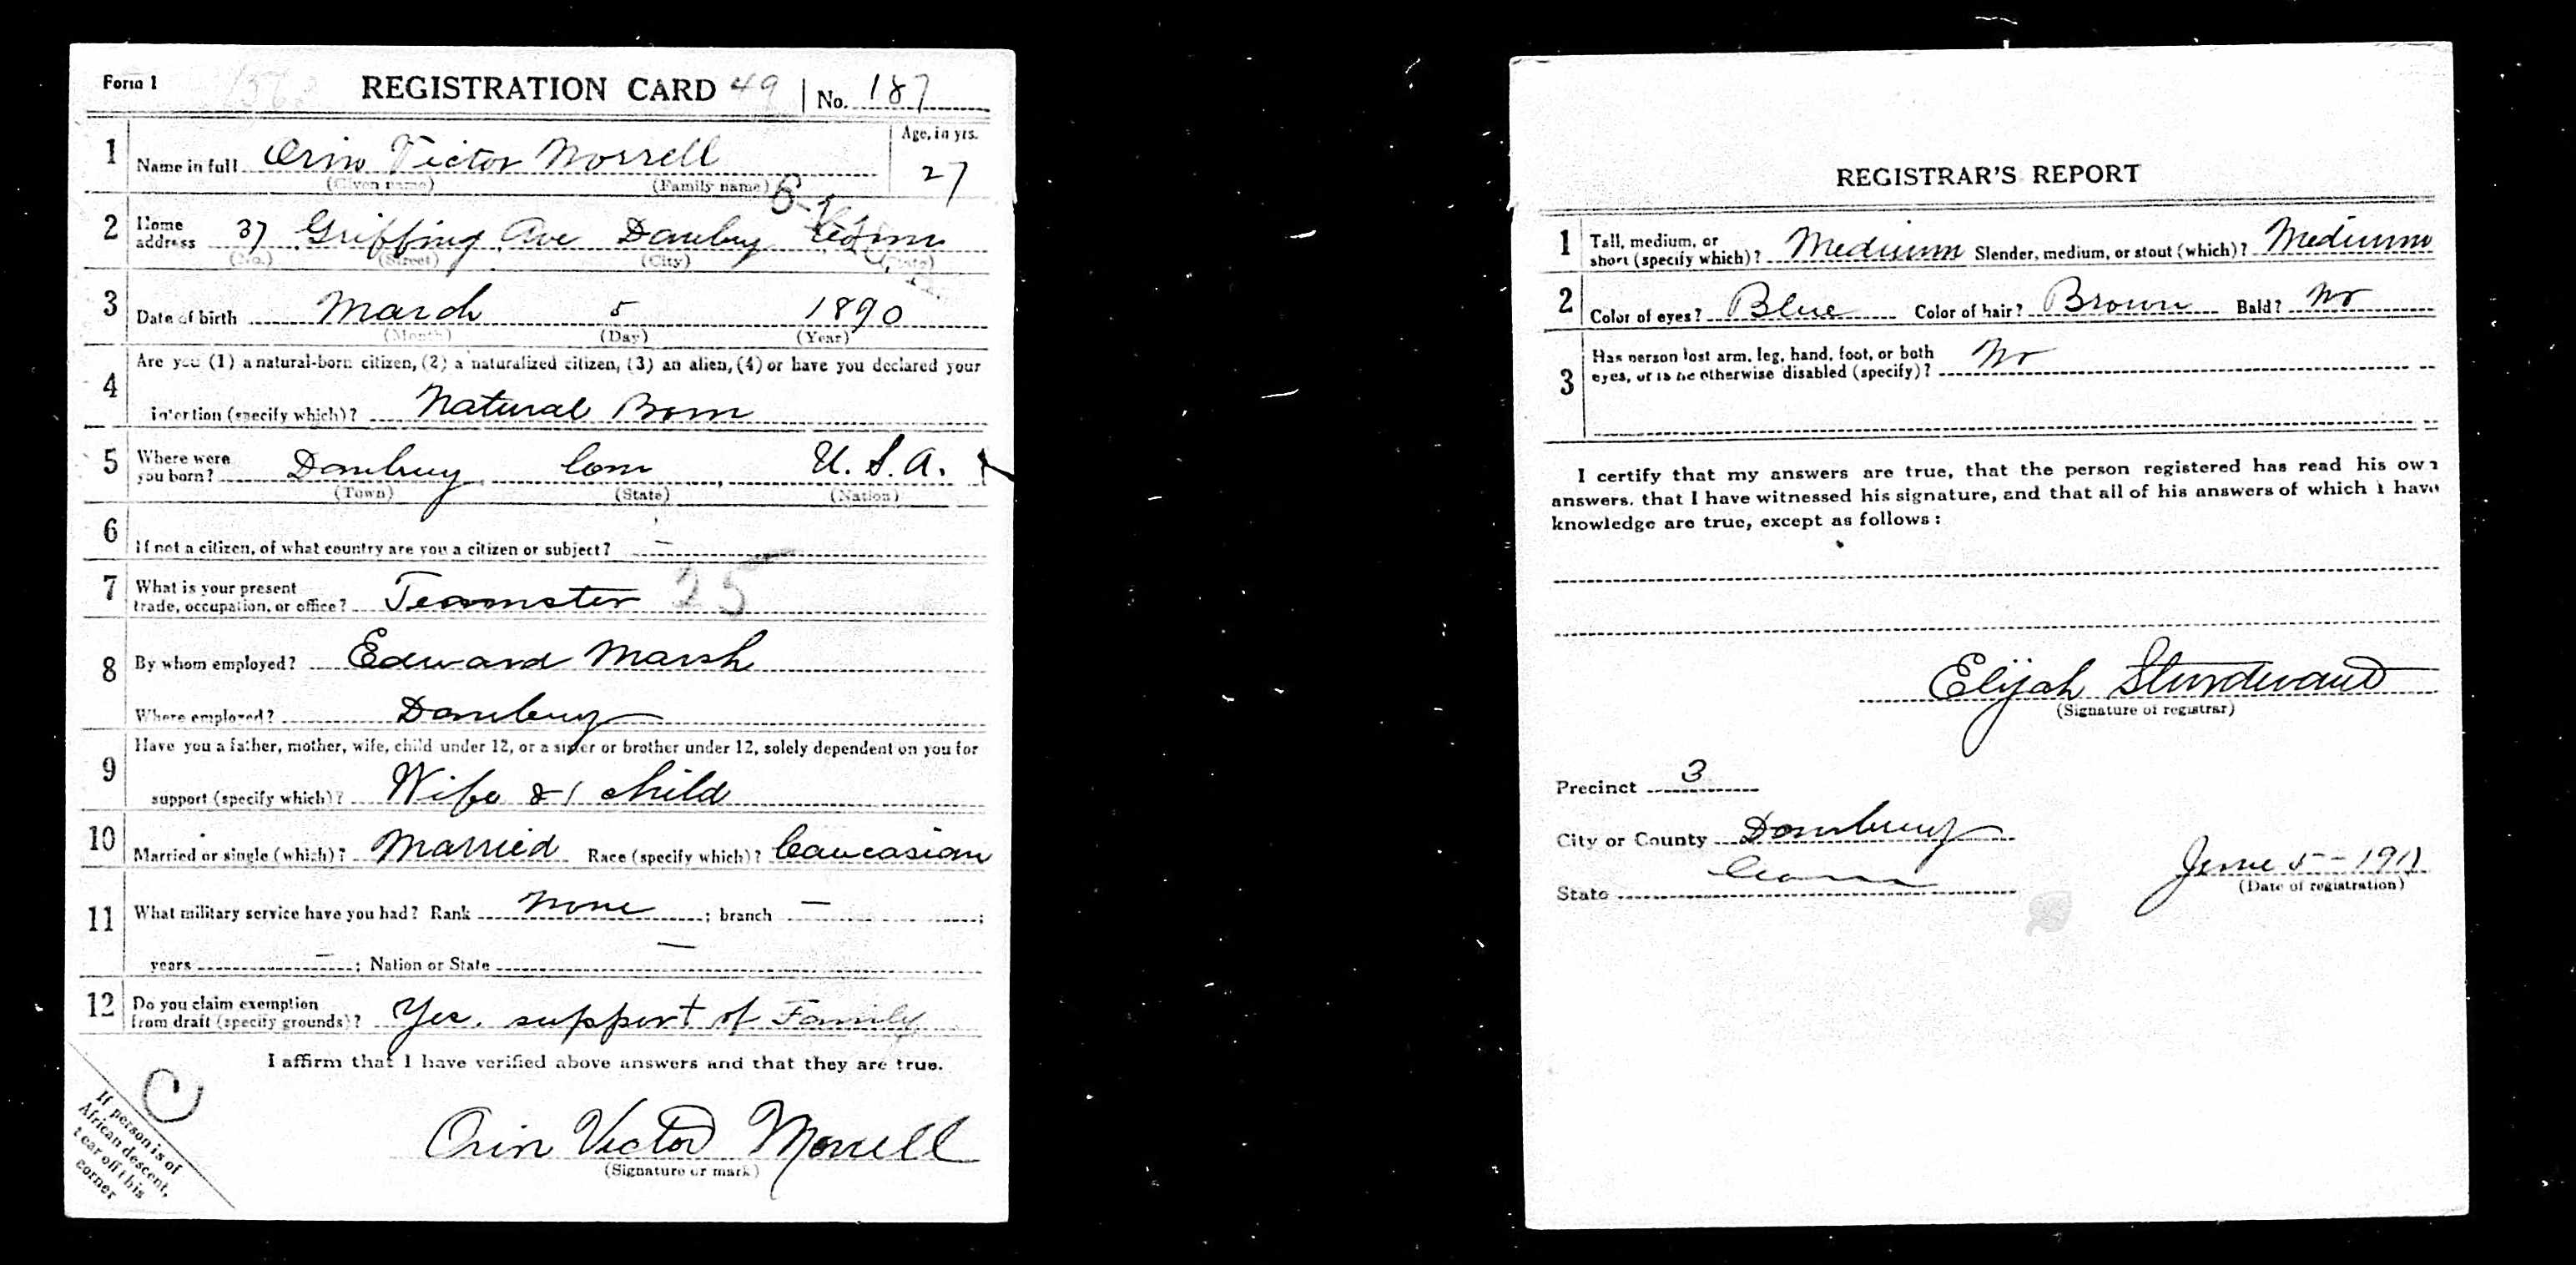 Form 1
REGISTRATION CARD 49 No. 187
1 Name in full Orin Victor Morrell Age, in yrs.
(Given name) (Family name) 27
2 Home address 37 Griffing Ave Danbury Conn
(No.) (Street) (City) (State)
3 Date of birth March 5 1890
(Month) (Day) (Year)
4 Are you (1) a natural-born citizen, (2) a naturalized citizen, (3) an alien, (4) or have you declared your
intention (specify which)? Natural Born
5 Where were you born? Danbury Conn U.S.A.
(Town) (State) (Nation)
6 If not a citizen, of what country are you a citizen or subject? —
7 What is your present trade, occupation, or office? Teamster 25
8 By whom employed? Edward Marsh
Where employed? Danbury
9 Have you a father, mother, wife, child under 12, or a sister or brother under 12, solely dependent on you for
support (specify which)? Wife & 1 child
10 Married or single (which)? Married Race (specify which)? Caucasian
11 What military service have you had? Rank None ; branch — ;
years — ; Nation or State —
12 Do you claim exemption from draft (specify grounds)? Yes. support of Family
I affirm that I have verified above answers and that they are true.
Orin Victor Morrell
(Signature or mark)
If person is of
African descent,
tear off this
corner
REGISTRAR'S REPORT
1 Tall, medium, or short (specify which)? Medium Slender, medium, or stout (which)? Medium
2 Color of eyes? Blue Color of hair? Brown Bald? No
3 Has person lost arm, leg, hand, foot, or both
eyes, or is he otherwise disabled (specify)? No
I certify that my answers are true, that the person registered has read his own
answers, that I have witnessed his signature, and that all of his answers of which I have
knowledge are true, except as follows:
Elijah Sturdevant
(Signature of registrar)
Precinct 3
City or County Danbury
State Conn
June 5 - 1917
(Date of registration)